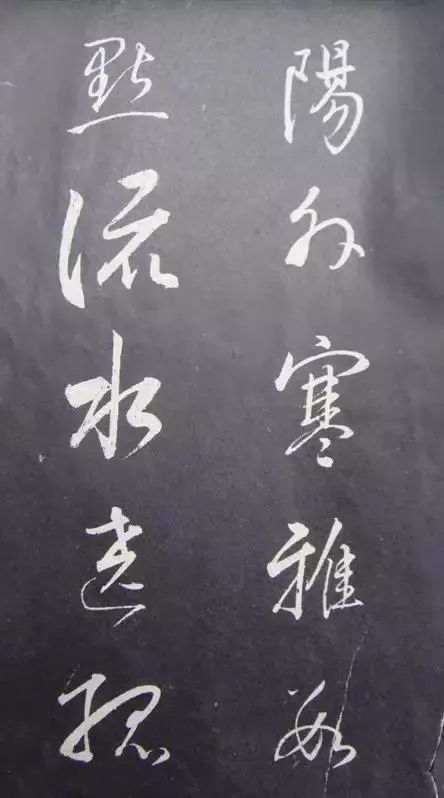 陽外寒雅數
點流水遶孤